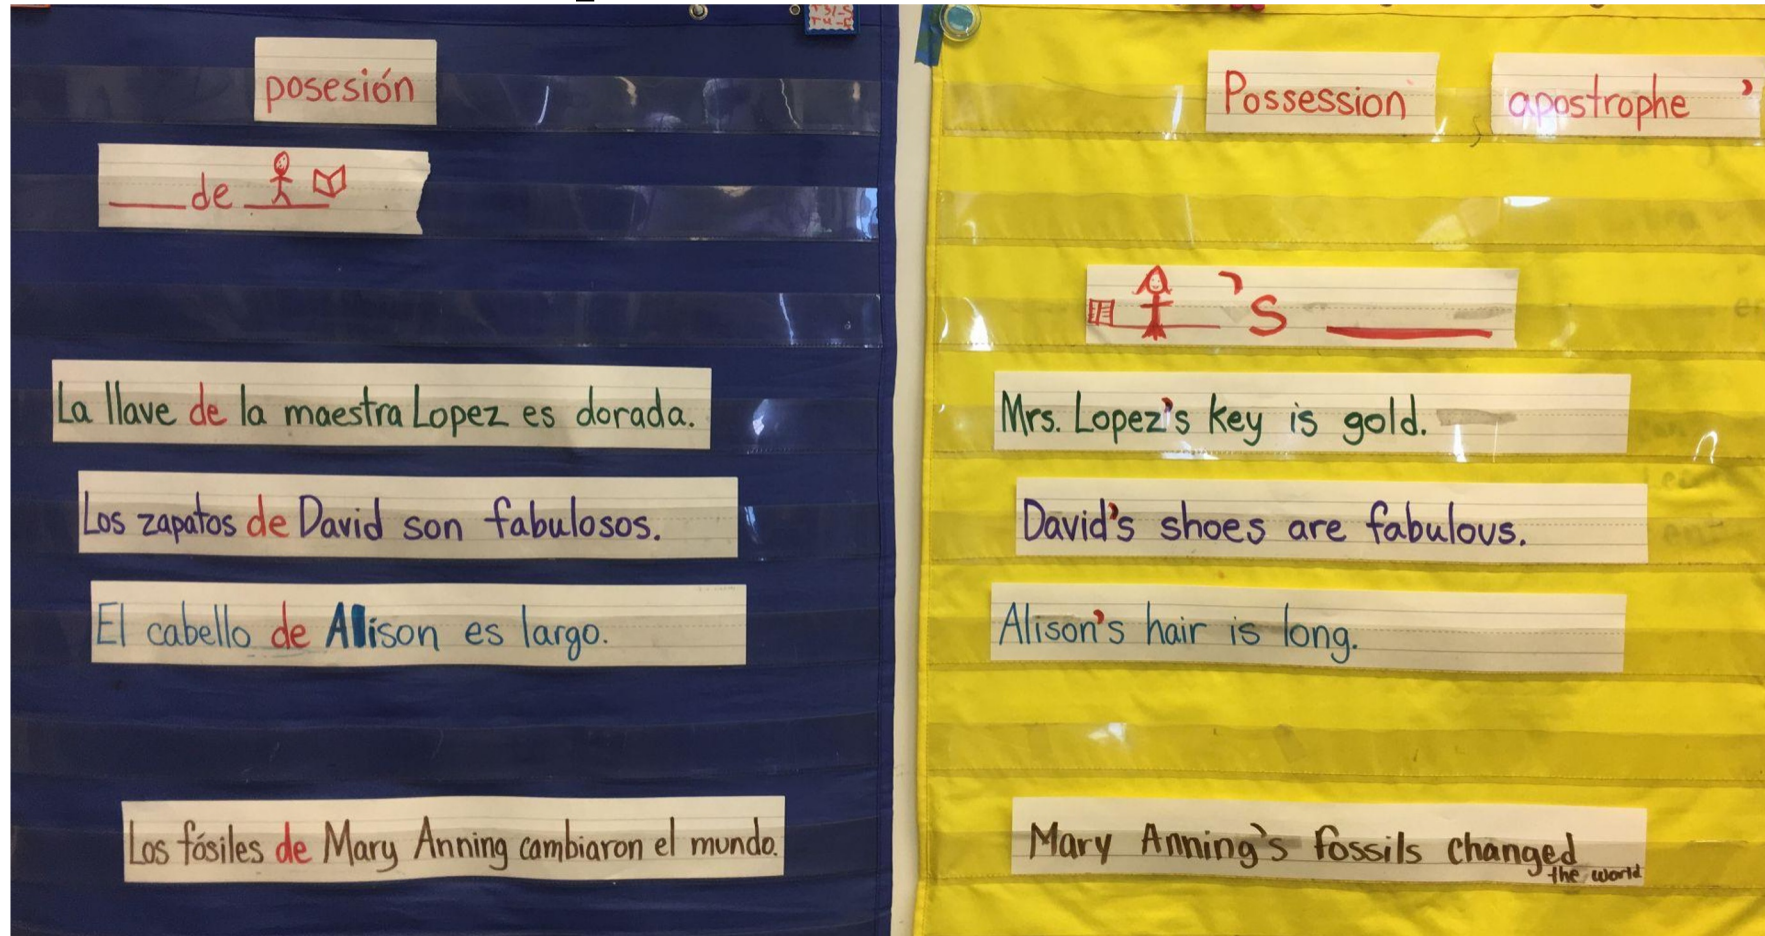 posesión
___ de ___
La llave de la maestra Lopez es dorada.
Los zapatos de David son fabulosos.
El cabello de Alison es largo.
Los fósiles de Mary Anning cambiaron el mundo.
Possession
apostrophe ’
___’s ___
Mrs. Lopez’s key is gold.
David’s shoes are fabulous.
Alison’s hair is long.
Mary Anning’s fossils changed
the world